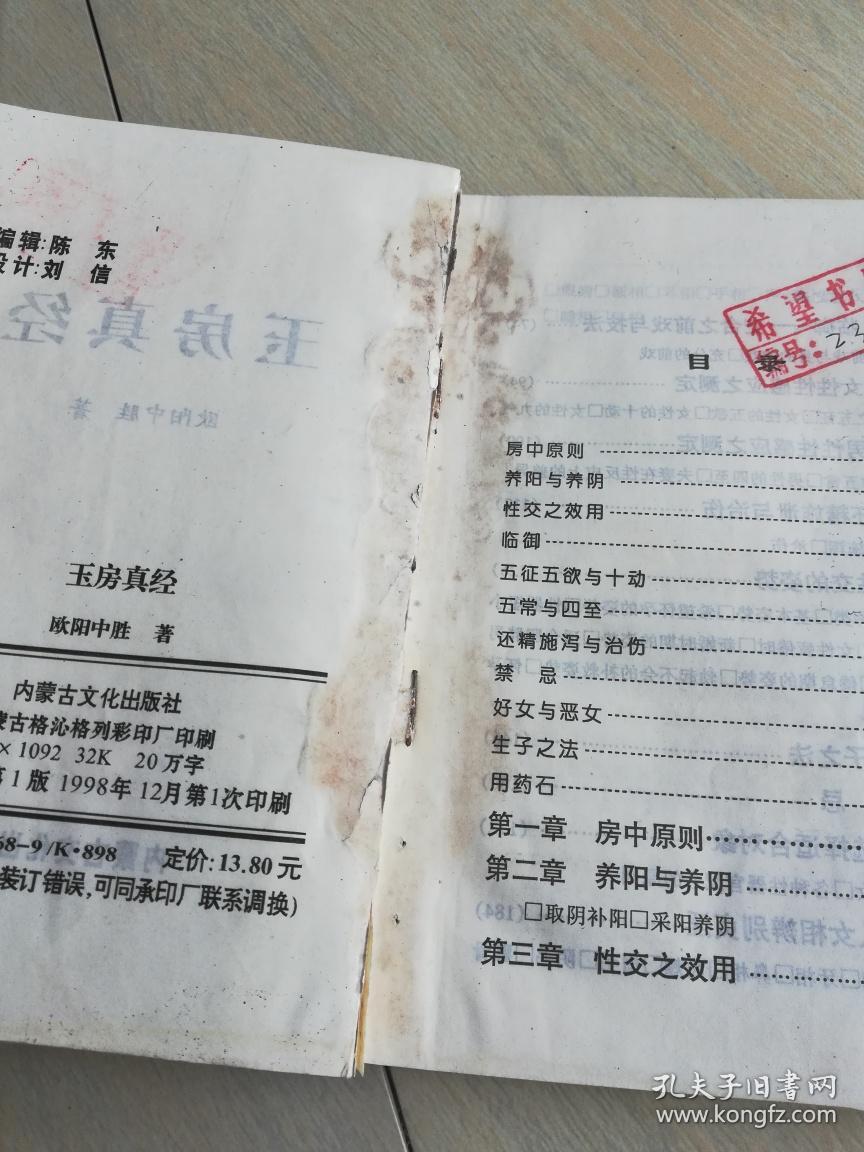 编辑:陈 东
设计:刘 信
玉房真经
欧阳中胜 著
玉房真经
欧阳中胜 著
内蒙古文化出版社
蒙古格沁格列彩印厂印刷
×1092 32K 20万字
第1版 1998年12月第1次印刷
68-9/K·898 定价:13.80元
装订错误,可同承印厂联系调换)
希望书
编号:23
目 录
房中原则
养阳与养阴
性交之效用
临御
五征五欲与十动
五常与四至
还精施泻与治伤
禁 忌
好女与恶女
生子之法
用药石
第一章 房中原则
第二章 养阳与养阴
□取阴补阳□采阳养阴
第三章 性交之效用
孔夫子旧书网
www.kongfz.com